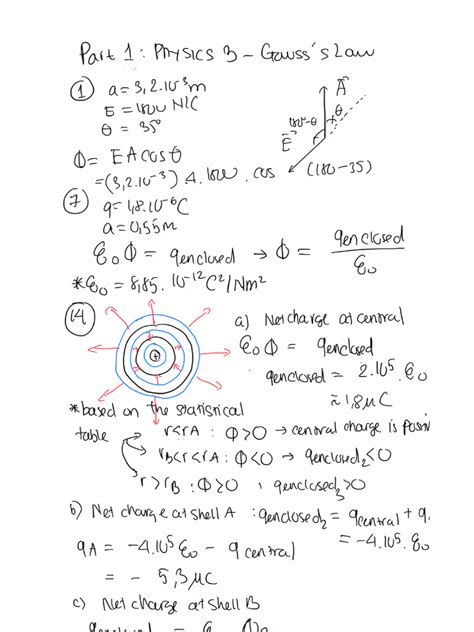 Part 1: Physics 3 - Gauss's Law
① a = 3,2.10⁻³ m
E = 1800 N/C
θ = 35°
A⃗
θ
180-θ
E⃗
Φ = EA cos θ
= (3,2.10⁻³).4.1800.cos (180-35)
⑦ q = 1,8.10⁻⁶ C
a = 0,55 m
ε₀Φ = qenclosed → Φ = qenclosed / ε₀
*ε₀ = 8,85.10⁻¹² C²/Nm²
⑭ a) Net charge at central
ε₀Φ = qenclosed
qenclosed = 2.10⁵.ε₀
≈ 1,8 μC
* based on the statistical
table
r<rA : Φ>0 → central charge is
rB<r<rA : Φ<0 → qenclosed₂<0
r>rB : Φ≥0 qenclosed₃>0
b) Net charge at shell A : qenclosed₂ = qcentral + q
= -4.10⁵.ε₀
qA = -4.10⁵ε₀ - qcentral
= - 5,3 μC
c) Net charge at shell B